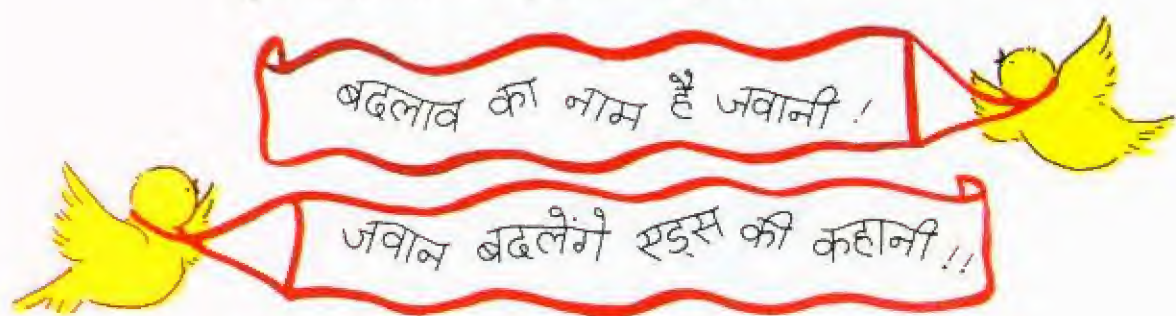 बदलाव का नाम है जवानी !
जवान बदलेंगे एड्स की कहानी !!